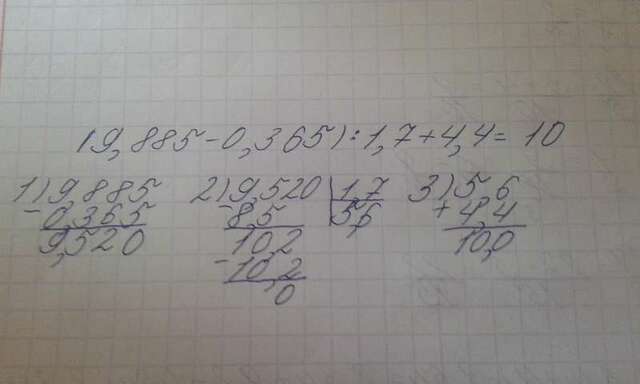 (9,885-0,365):1,7+4,4=10
1) 9,885 2) 9,520 | 1,7 3) 5,6
- 0,365 - 8,5 | 5,6 + 4,4
9,520 10,2 10,0
- 10,2
0